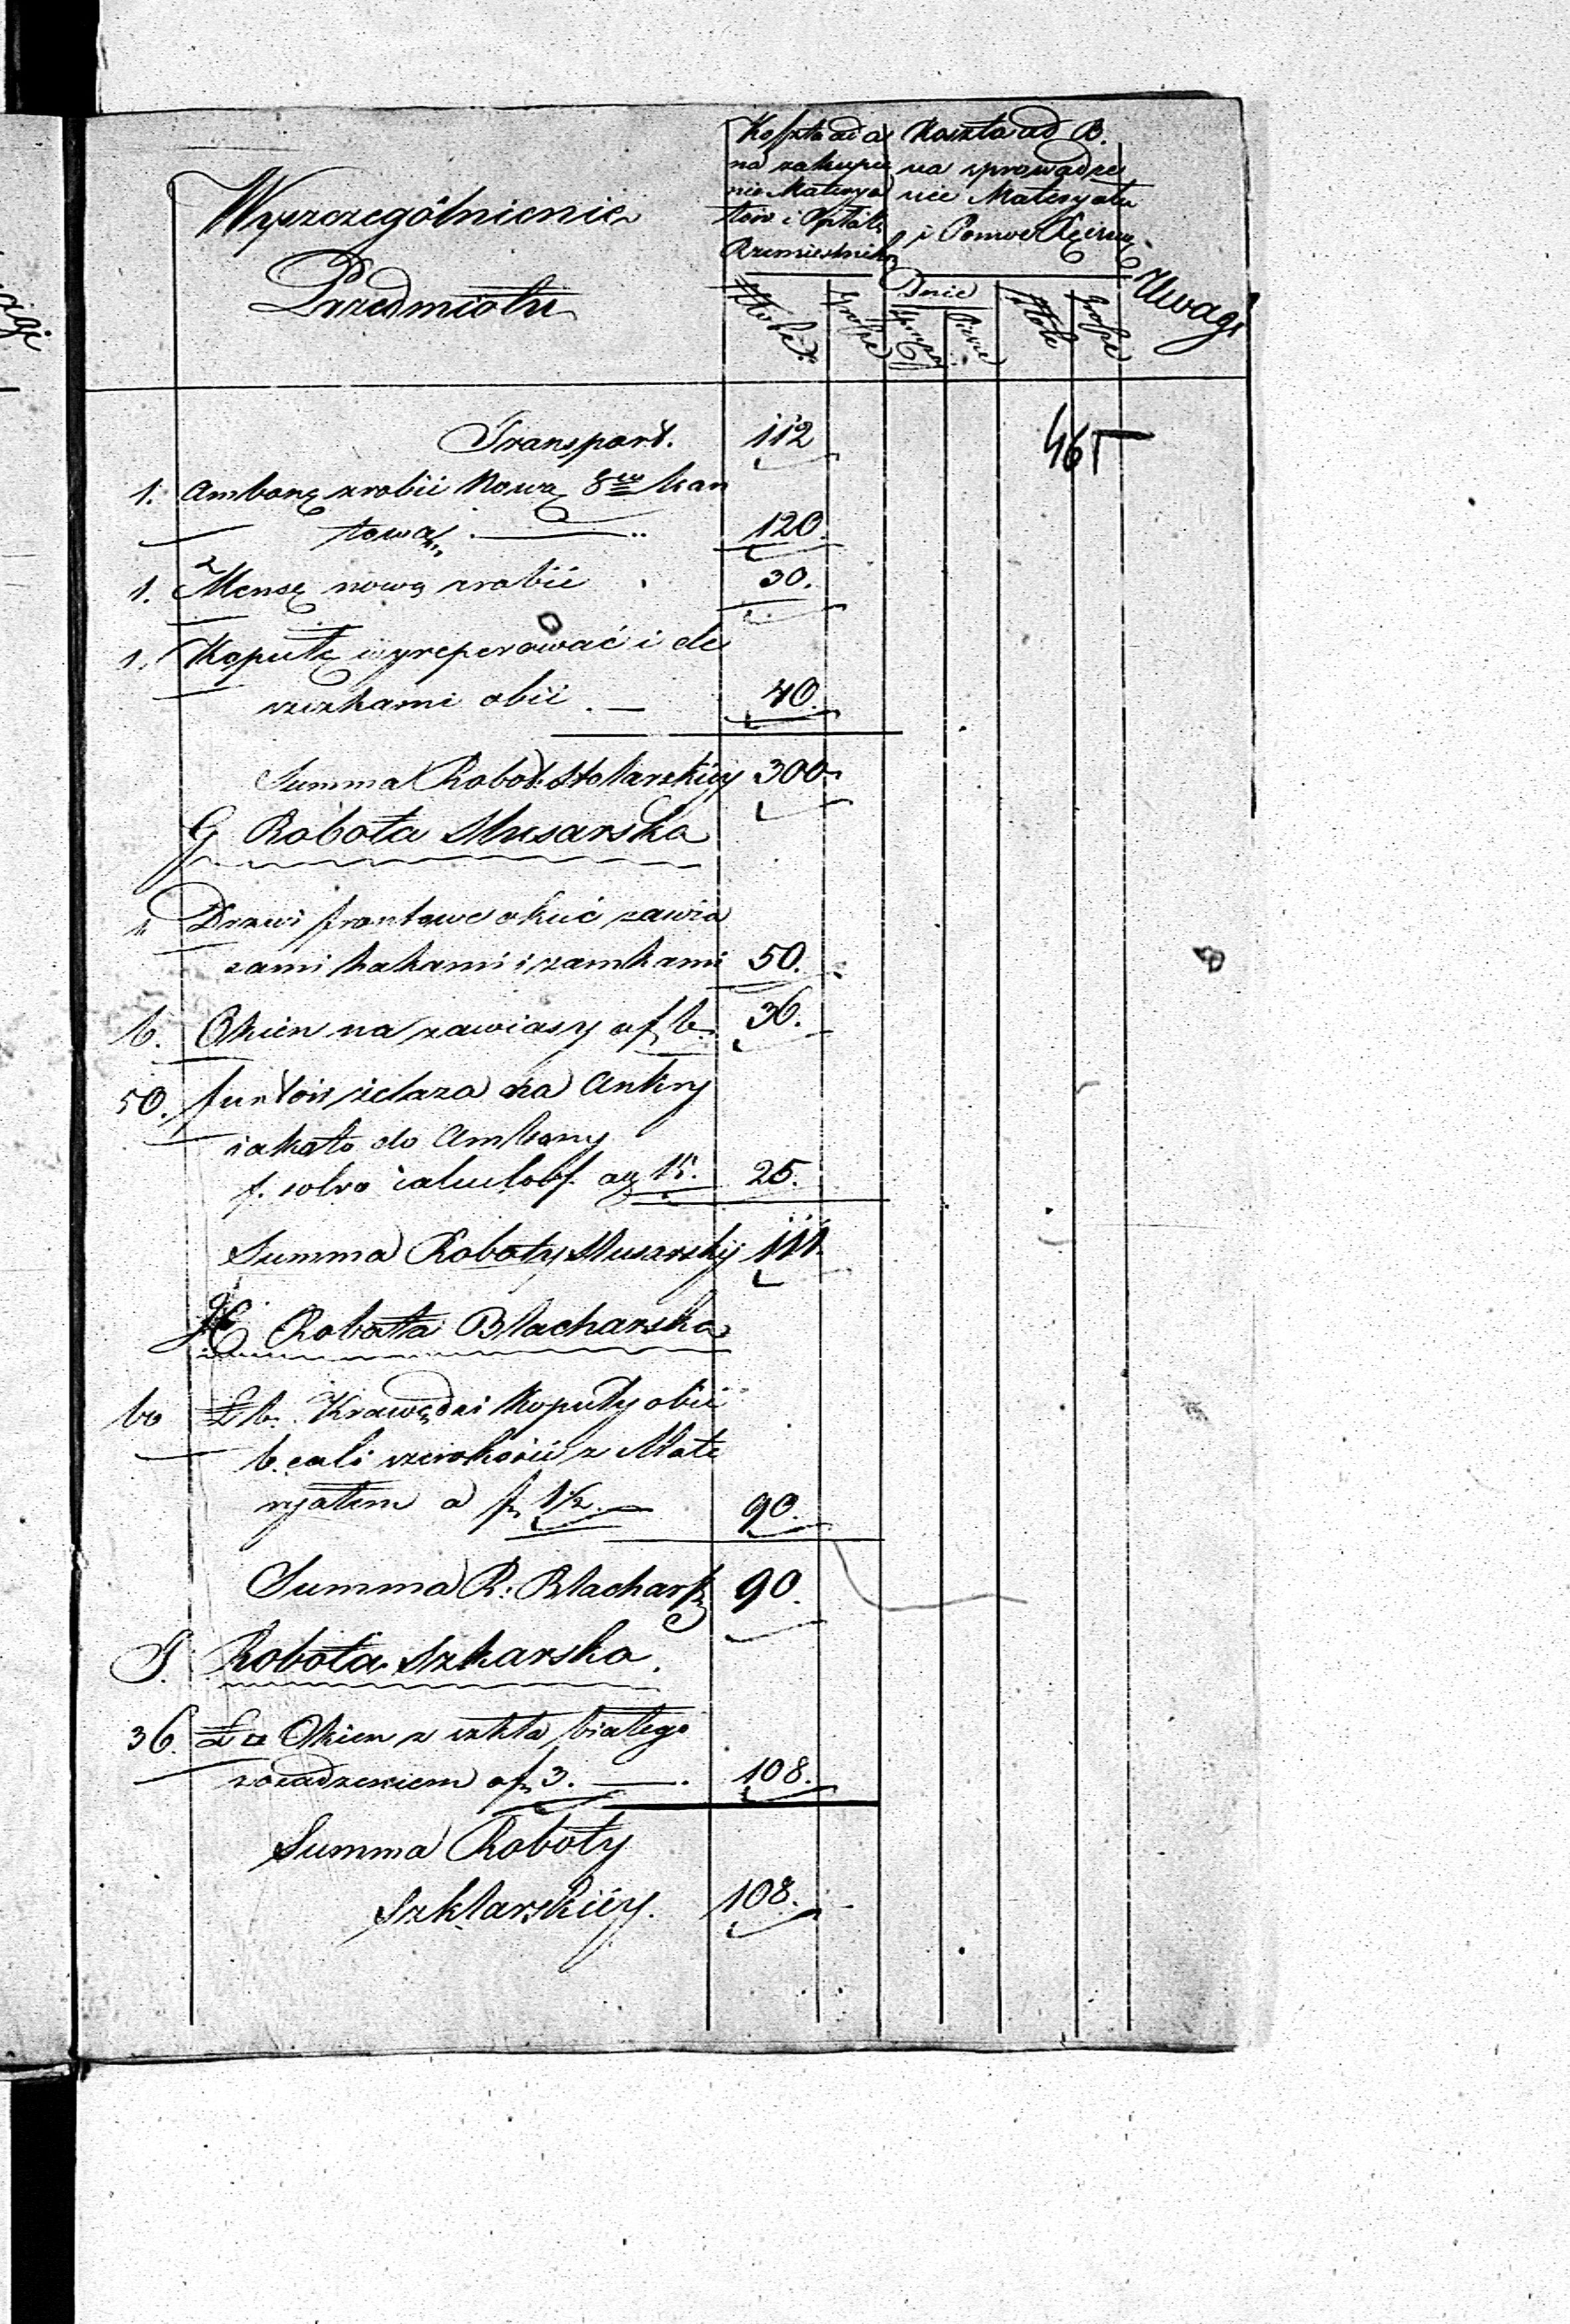 Wyszczególnienie
Przedmiotu
Koszta ad A
na zakupie
nie Materya
łów i Opłatę
Rzemieślnik
Koszta ad B.
na sprowadze
nie Materyału
i Pomoc Ręczną
Uwagi
Złote
Grosze
Dnie
Sprzęż
Piesze
Złote
Grosze
Transport. 112 465
1. Ambonę zrobić Nową 8io kan
tową 120.
1. Mensę nową zrobić 30.
1. Kopułę wyreperować i de
szczkami obić 40.
Summa Robot: Stolarskiéy 300
G Robota Slusarska
1. Drzwi frontowe okuć zawia
sami hakami i zamkami 50.
6. Okien na zawiasy a f 6. 36.
50. funtów żelaza na Ankry
iakoto do Ambony
f. 15. 25.
Summa Roboty Slusarskiy 111
H Robota Blacharska
60 Ł b. Krawędzi Kopuły obić
6. cali szerokości z Mate
ryałem a f 1½ 90.
Summa R: Blachars 90.
J. Robota Szklarska.
36. Okien z szkła białego
osadzeniem a f 3. 108.
Summa Roboty
Szklarskiéy. 108.